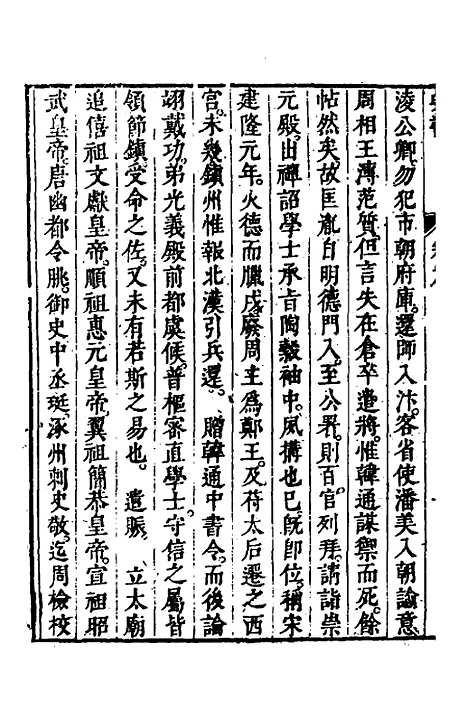 淩公卿勿犯市朝府庫還師入汴客省使潘美入朝諭意
周相王溥范質但言失在倉卒遣將惟韓通謀禦而死餘
帖然矣故匡胤自明德門入至公署則百官列拜請詣崇
元殿出禪詔學士承旨陶穀袖中夙搆也已旣卽位稱宋
建隆元年火德而臘戌廢周主爲鄭王及符太后遷之西
宫未幾鎮州惟報北漢引兵還 贈韓通中書令而後論
翊戴功弟光義殿前都虞候普樞密直學士守信之屬皆
領節鎮受命之佐又未有若斯之易也 遣賑 立太廟
追僖祖文獻皇帝順祖惠元皇帝翼祖簡恭皇帝宣祖昭
武皇帝唐幽都令朓御史中丞珽涿州刺史敬迄周檢校